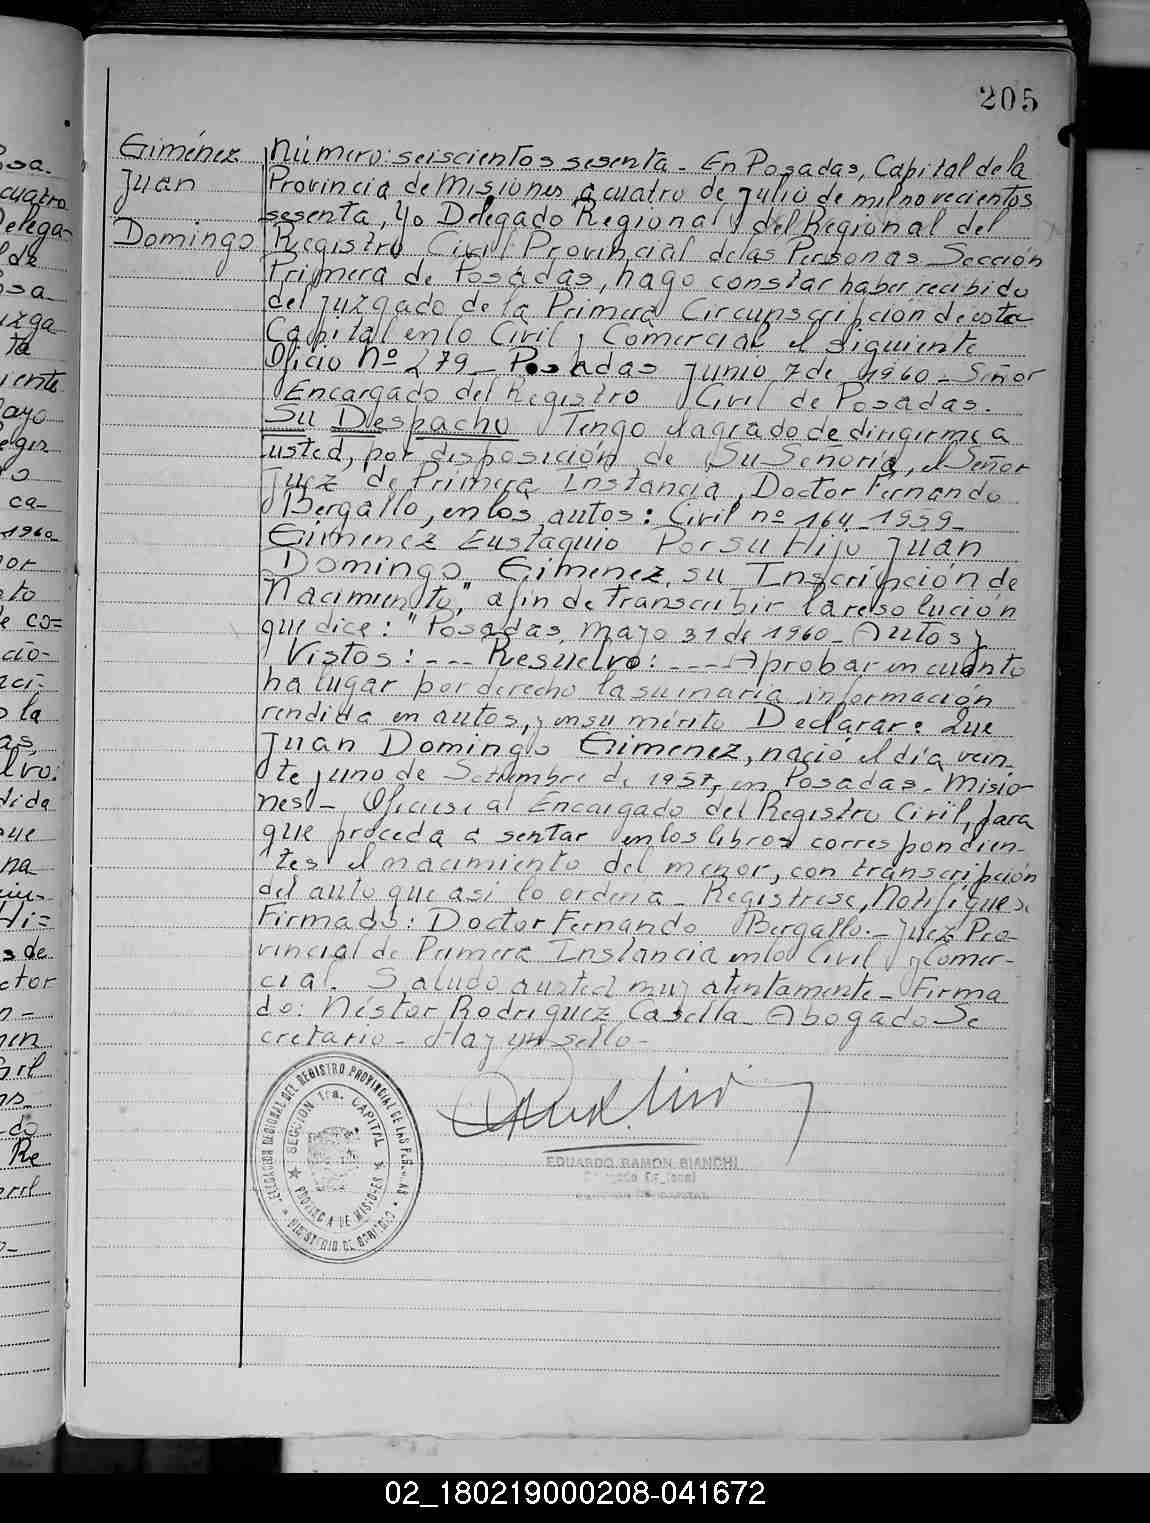 205
Giménez
Juan
Domingo
Número: seiscientos sesenta - En Posadas, Capital de la
Provincia de Misiones, a cuatro de Julio de mil novecientos
sesenta, Yo Delegado Regional del Regional del
Registro Civil Provincial de las Personas Sección
Primera de Posadas, hago constar haber recibido
del juzgado de la Primera Circunscripción de esta
Capital en lo Civil y Comercial el siguiente
Oficio Nº 279_ Posadas Junio 7 de 1960 - Señor
Encargado del Registro Civil de Posadas.
Su Despacho Tengo el agrado de dirigirme a
usted, por disposición de Su Señoría, el Señor
Juez de Primera Instancia, Doctor Fernando
Bergallo, en los autos: Civil nº 164_1959_
Gimenez Eustaquio Por su Hijo Juan
Domingo Gimenez, su Inscripción de
Nacimiento," a fin de transcribir la resolución
que dice: "Posadas, Mayo 31 de 1960_ Autos y
Vistos: --- Resuelvo: ---- Aprobar en cuanto
ha lugar por derecho la sumaria información
rendida en autos, y en su mérito Declarar: Que
Juan Domingo Gimenez, nació el día vein-
te y uno de Setiembre de 1957, en Posadas - Misio-
nes - Ofíciese al Encargado del Registro Civil, para
que proceda a sentar en los libros correspondien-
tes el nacimiento del menor, con transcripción
del auto que así lo ordena - Regístrese, Notifíquese
Firmado: Doctor Fernando Bergallo - Juez Pro-
vincial de Primera Instancia en lo Civil y Comer-
cial. Saludo a usted muy atentamente - Firma
do: Néstor Rodriguez Casella - Abogado Se
cretario - Hay un sello -
DELEGACION REGIONAL DEL REGISTRO PROVINCIAL DE LAS PERSONAS
SECCION 1ra. CAPITAL
PROVINCIA DE MISIONES
MINISTERIO DE GOBIERNO
EDUARDO RAMON BIANCHI
02_180219000208-041672